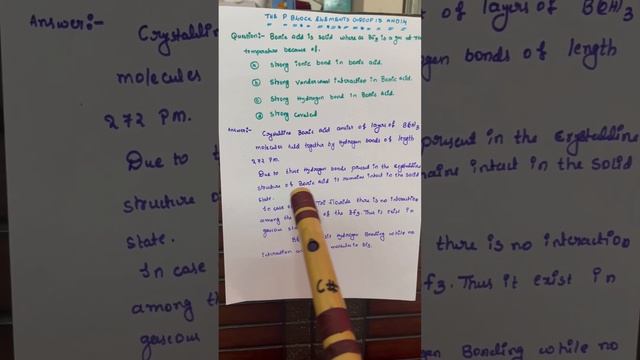 THE P BLOCK ELEMENTS GROUP 13 AND 14
Question:- Boric acid is solid where as Bf3 is a gas at
temperature because of.
a strong ionic bond in boric acid.
b strong vanderwaal interaction in Boric Acid.
c strong Hydrogen bond in Boric Acid.
d strong Covalent
Answer:- Crystalline Boric acid consist of layers of B(OH)3
molecules held together by Hydrogen bonds of length
272 PM.
Due to these Hydrogen bonds present in the crystalline
structure of Boric Acid is remains intact in the solid
state.
In case floride there is no interaction
among the of the Bf3. Thus it exist in
gaseous
Hydrogen Bonding while no
interaction
C#
Answer:-
Crystalline
molecules
272 PM.
Due to
structure
state.
In case
among th
gaseous
of layers of B(OH)3
gen bonds of length
present in the crystalline
remains intact in the solid
there is no interaction
f3. Thus it exist in
gen Bonding while no